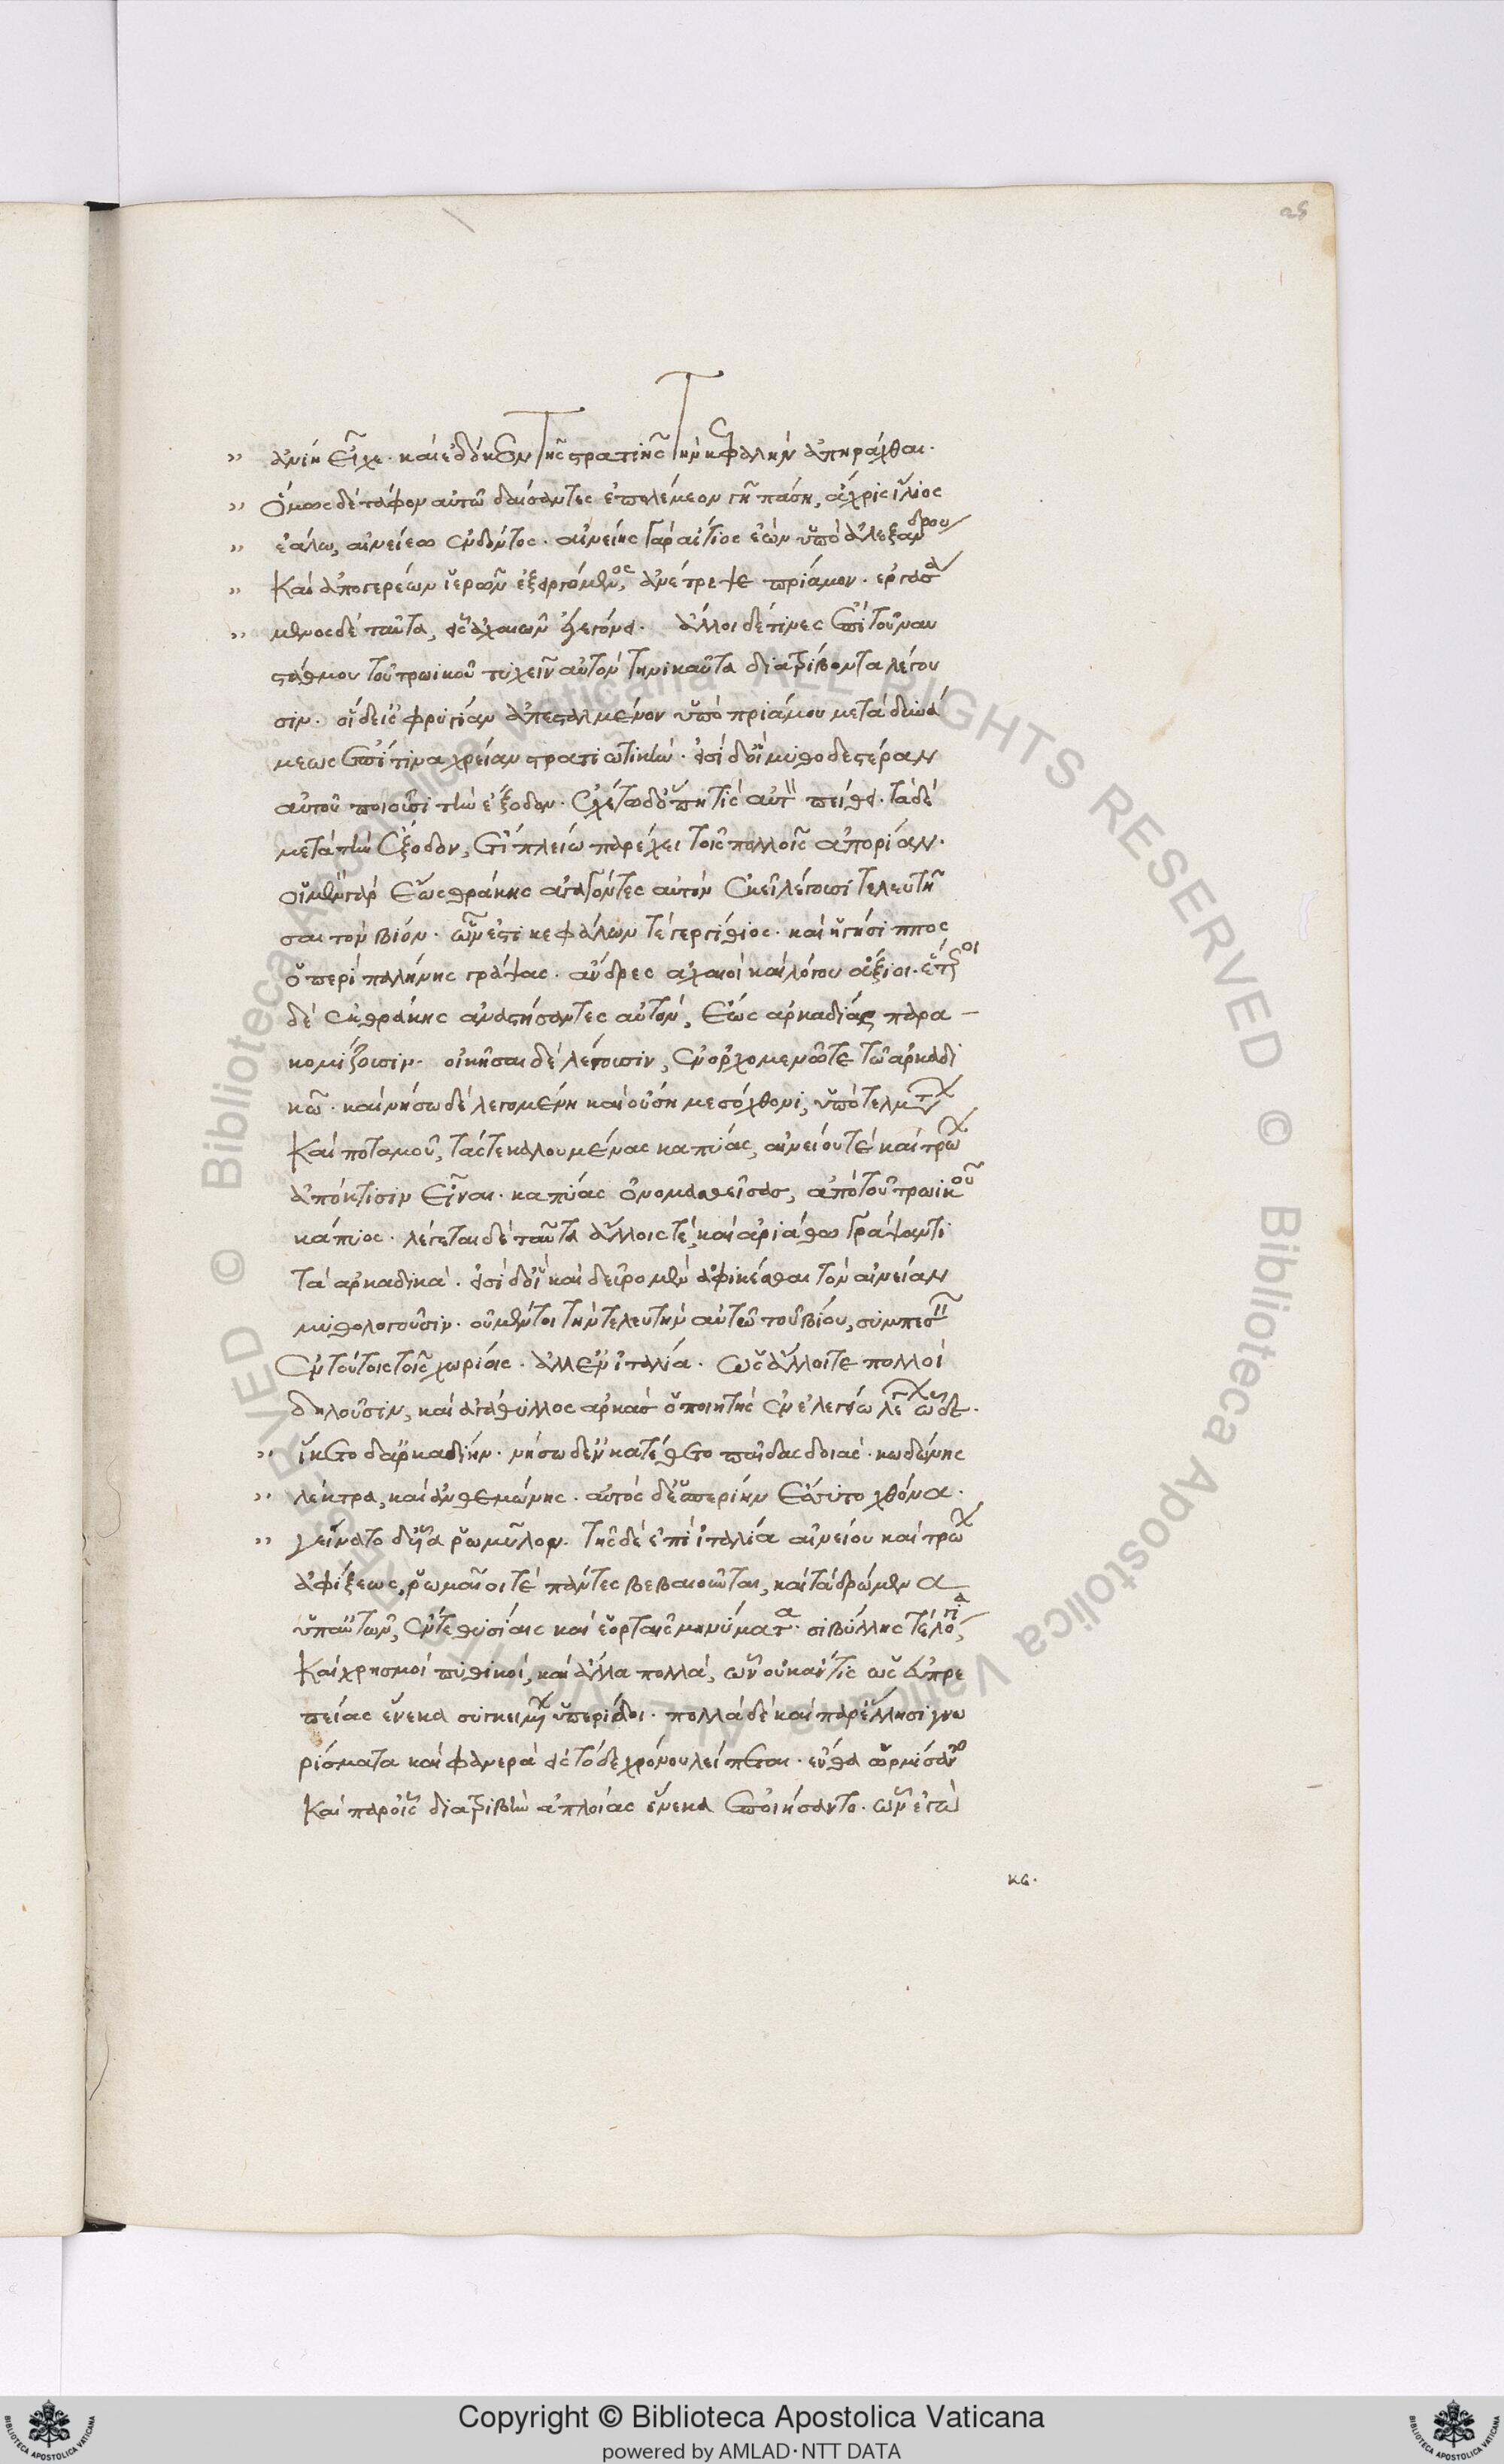 ἀνίη εἶχε. καὶ ἐδόκεον τῆς στρατιῆς τὴν κεφαλὴν ἀπηράχθαι.
ὅμως δὲ τάφον αὐτῶ δαίσαντες ἐπολέμεον γῆ πάση, ἄχρις ἴλιος
ἑάλω, αἰνείεω ἐνδόντος. αἰνείης γὰρ ἄτιτος ἐὼν ὑπὸ ἀλεξάνδρου
καὶ ἀπὸ γερέων ἱερῶν ἐξειργόμενος, ἀνέτρεψε πρίαμον. ἐργασά
μενος δὲ ταῦτα, εἷς ἀχαιῶν ἐγεγόνει. ἄλλοι δέ τινες ἐπὶ τοῦ ναυ
στάθμου τοῦ τρωικοῦ τυχεῖν αὐτὸν τηνικαῦτα διατρίβοντα λέγου
σιν. οἱ δὲ εἰς φρυγίαν ἀπεσταλμένον ὑπὸ πριάμου μετὰ δυνά
μεως ἐπί τινα χρείαν στρατιωτικήν. εἰσὶ δ' οἳ μυθοδεστέραν
αὐτοῦ ποιοῦσι τὴν ἔξοδον. ἐχέτω δ' ὅπη τις αὑτὸν πείθει. τὰ δὲ
μετὰ τὴν ἔξοδον, ἔτι πλείω παρέχει τοῖς πολλοῖς ἀπορίαν.
οἱ μὲν γὰρ ἕως θράκης ἀγαγόντες αὐτὸν ἐκεῖ λέγουσι τελευτῆ
σαι τὸν βίον. ὧν ἐστι κεφάλων τὲ γεργίθιος. καὶ ἡγήσιππος
ὁ περὶ παλήνης γράψας. ἄνδρες ἀχαιοὶ καὶ λόγου ἄξιοι. ἕτεροι
δὲ ἐκ θράκης ἀναστήσαντες αὐτὸν, ἕως ἀρκαδίας παρα
κομίζουσιν. οἰκῆσαι δὲ λέγουσιν, ἐν ὀρχομενῶ τε τῶ ἀρκαδι
κῶ. καὶ νήσω δὲ λεγομένη καὶ οὔση μεσόχθονι, ὑπὸ τελμάτων
καὶ ποταμοῦ, τάς τε καλουμένας καπύας, αἰνείου τὲ καὶ τρώων
ἀπόκτισιν εἶναι. καπύας ὀνομασθείσας, ἀπὸ τοῦ τρωικοῦ
κάπυος. λέγεται δὲ ταῦτα ἄλλοις τὲ, καὶ ἀριάθω γράψαντι
τὰ ἀρκαδικά. εἰσὶ δ' οἳ καὶ δεῦρο μὲν ἀφικέσθαι τὸν αἰνείαν
μυθολογοῦσιν. οὐ μέντοι τὴν τελευτὴν αὐτῶ τοῦ βίου, συμπεσεῖν
ἐν τούτοις τοῖς χωρίοις. ἀλλ' ἐν ἰταλία. ὡς ἄλλοι τε πολλοὶ
δηλοῦσιν, καὶ ἀγάθυλλος ἀρκὰς ὁ ποιητὴς ἐν ἐλεγείω λέγων ὧδε.
ἵκετο δ' ἀρκαδίην. νήσω δ' ἐγκατέθετο παῖδας δοιάς. κωδώνης
λέκτρα, καὶ ἀνθεμώνης. αὐτὸς δ' ἑσπερίην ἔσυτο χθόνα.
γείνατο δ' υἷα ῥωμῦλον. τῆς δὲ ἐπὶ ἰταλία αἰνείου καὶ τρώων
ἀφίξεως, ῥωμαῖοί τε πάντες βεβαιωταὶ, καὶ τὰ δρώμενα
ὑπ' αὐτῶν, ἔν τε θυσίαις καὶ ἑορταῖς μηνύματα. σιβύλλης τε λόγια,
καὶ χρησμοὶ πυθικοὶ, καὶ ἄλλα πολλά, ὧν οὐκ ἄν τις ὡς εὐπρε
πείας ἕνεκα συγκειμένων ὑπερίδοι. πολλὰ δὲ καὶ παρ' ἕλλησι γνω
ρίσματα καὶ φανερὰ εἰς τόδε χρόνου λείπεται. ἔνθα ὡρμίσαντο
καὶ παρ' οἷς διατριβὴν ἀπλοίας ἕνεκα ἐποιήσαντο. ὧν ἐγὼ